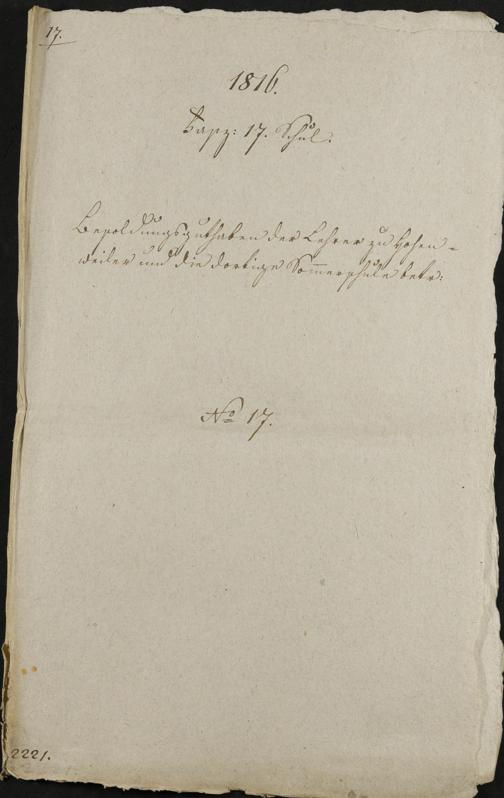 17.
1816.
Fasz: 17. Schul.
Besoldungsguthaben der Lehrer zu Hohen=
weiler und die dortige Som̅erschule betr:
No 17.
2221.